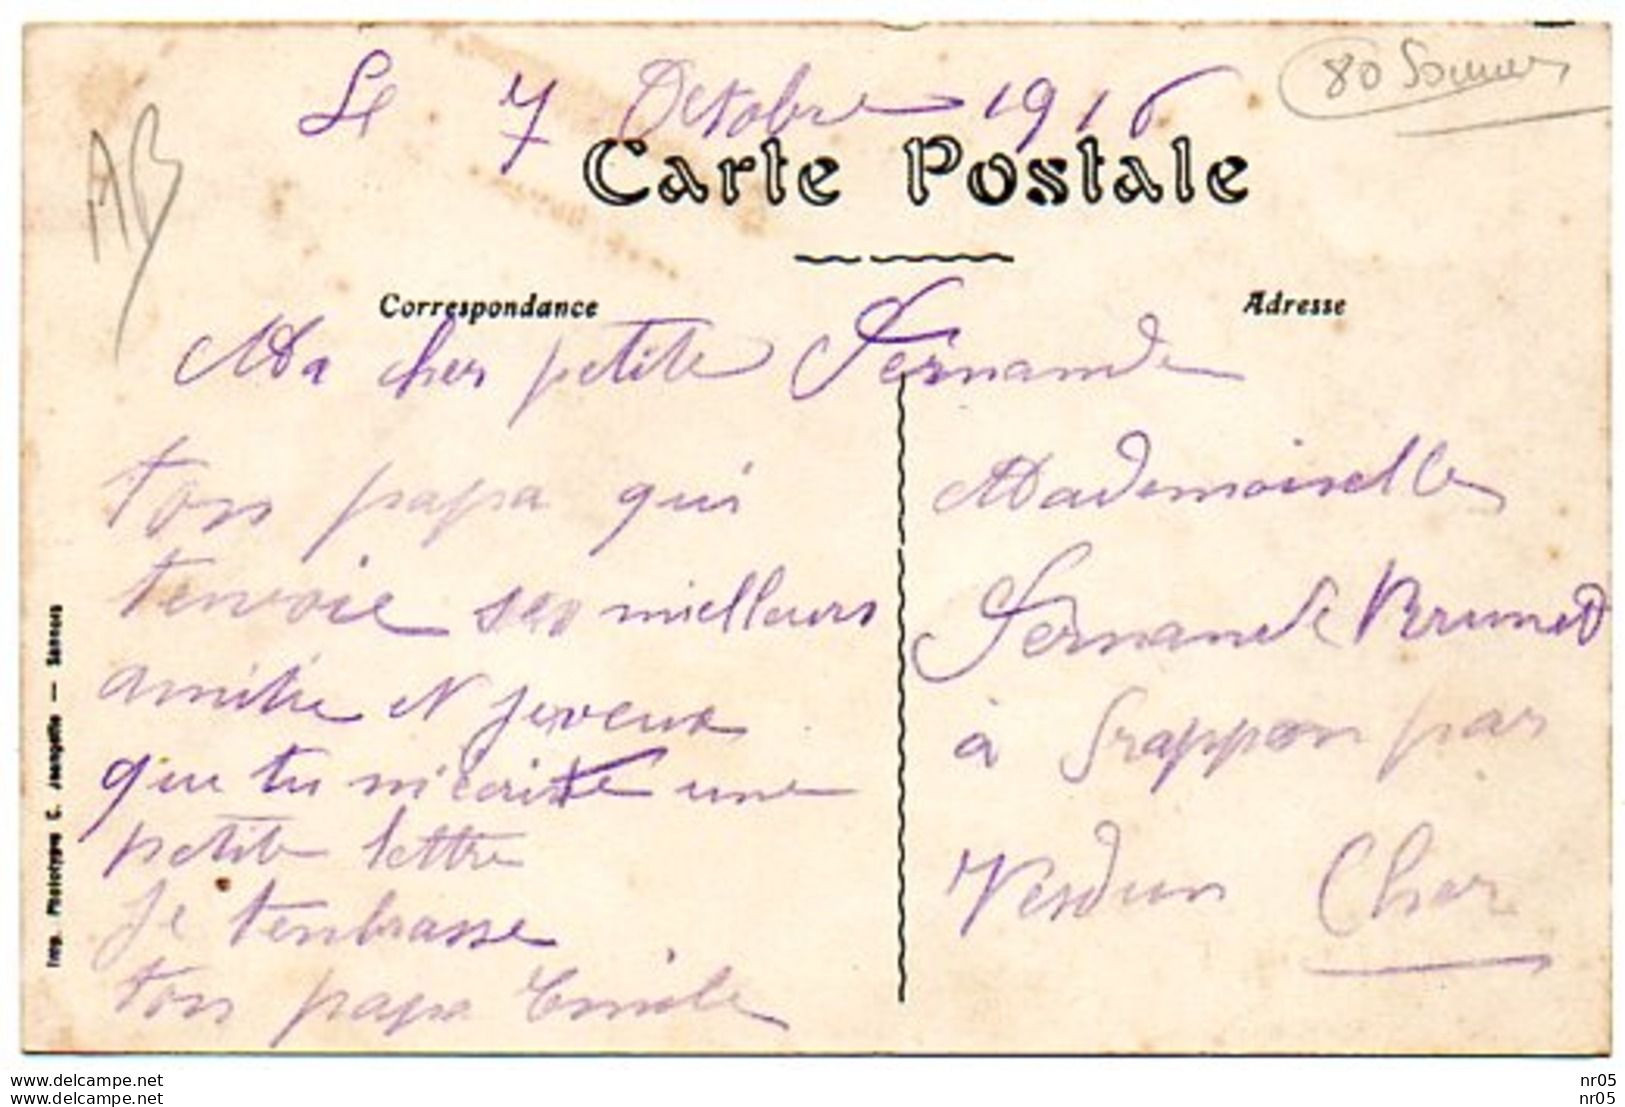 Le 7 Octobre 1916
80 Somme
AB
Carte Postale
Correspondance
Adresse
Ma cher petite Fernande
ton papa qui
tenvoie ses meilleurs
amitie et je veux
que tu m'écrite une
petite lettre
Je tenbrasse
ton papa Emile
Mademoiselle
Fernande Brunet
à Frappon par
Verdun Cher
Imp. Phototypes C. Jeangette — Sannois
www.delcampe.net
www.delcampe.net
nr05
nr05